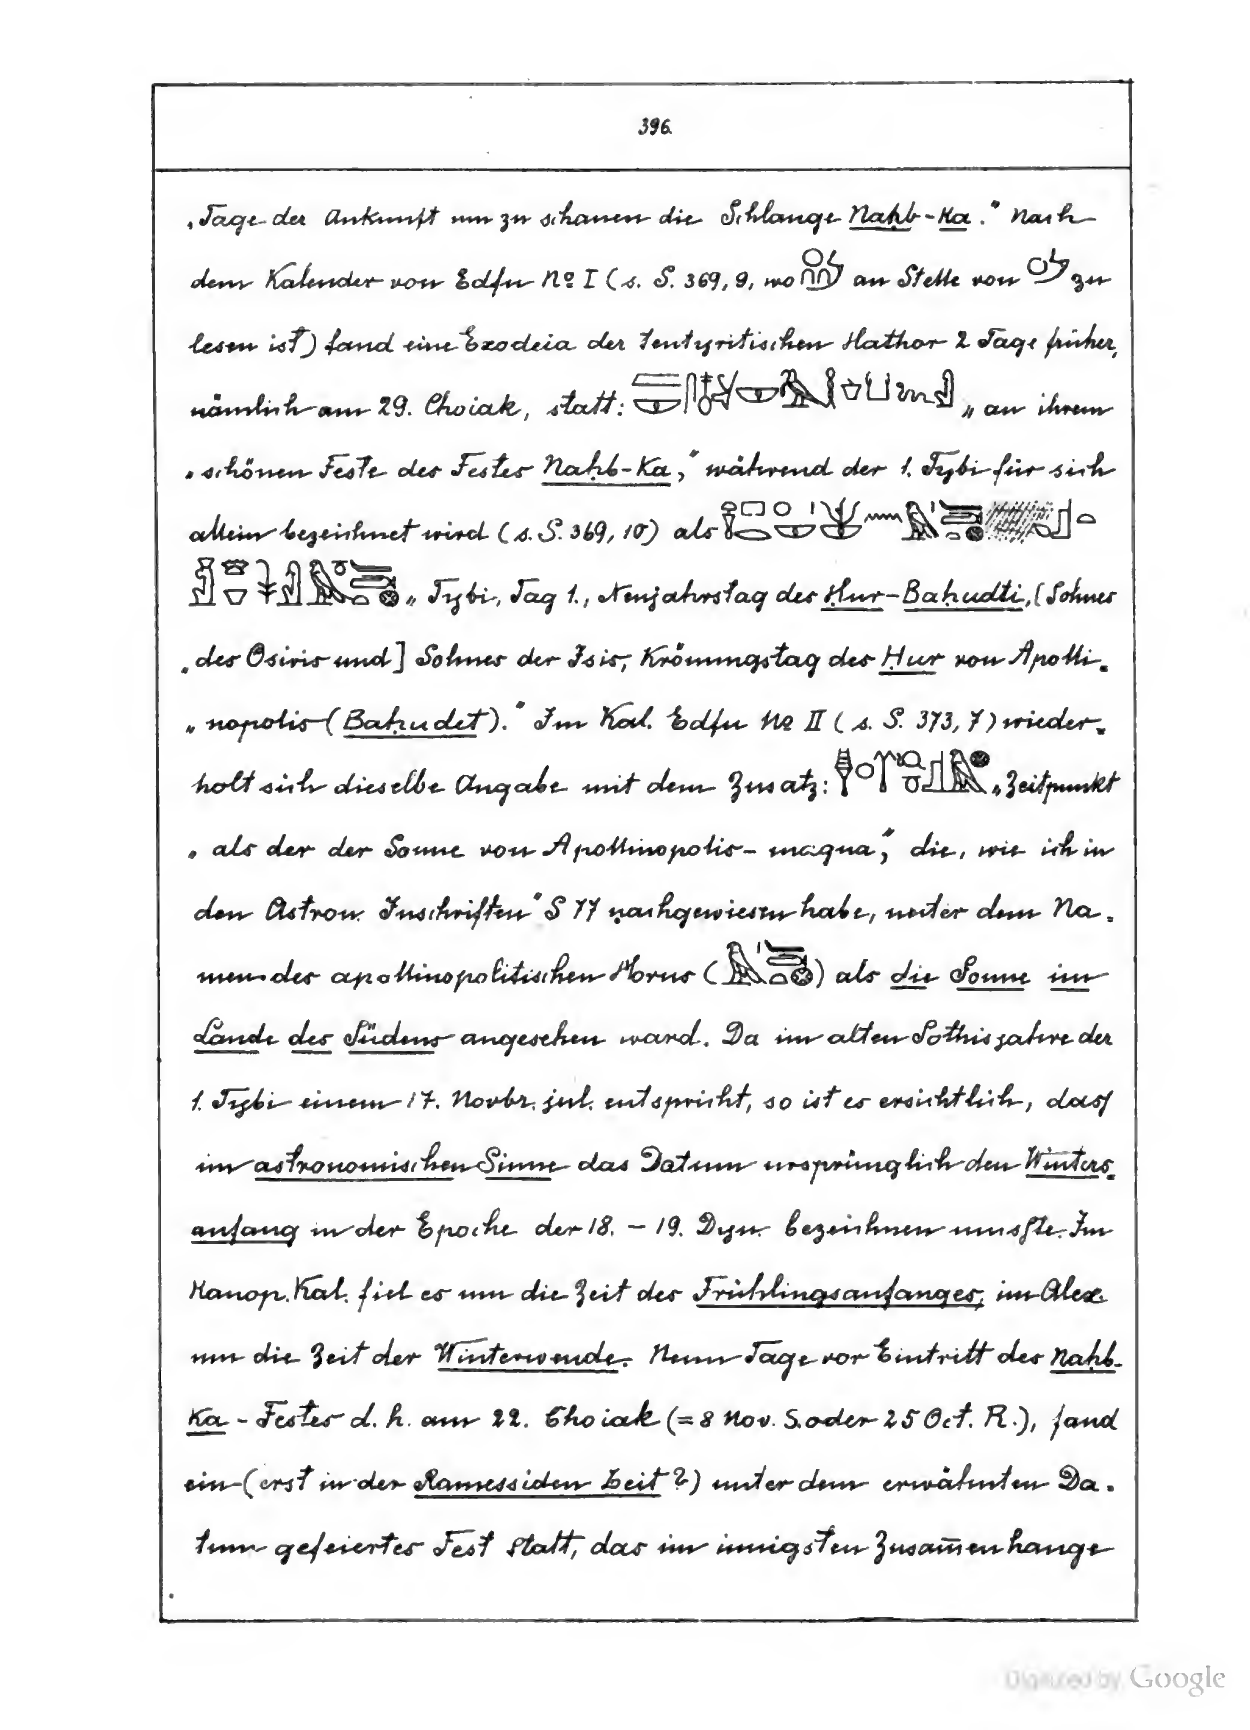 396.
„Tage der Ankunft um zu schauen die Schlange Nahb-Ka." Nach
dem Kalender von Edfu No I (s. S. 369, 9, wo an Stelle von zu
lesen ist) fand eine Exodeia der tentyritischen Hathor 2 Tage früher,
nämlich am 29. Choiak, statt: „an ihrem
„schönen Feste des Festes Naḥb-Ka," während der 1. Tybi für sich
allein bezeichnet wird (s. S. 369, 10) als
„Tybi, Tag 1., Neujahrstag des Ḥur-Baḥudti, [Sohnes
„des Osiris und] Sohnes der Isis, Krönungstag des Ḥur von Apolli-
„nopolis (Baḥudet)." Im Kal. Edfu No II (s. S. 373, 7) wieder-
holt sich dieselbe Angabe mit dem Zusatz: „Zeitpunkt
„als der der Sonne von Apollinopolis-magna", die, wie ich in
den Astron. Inschriften" S 77 nachgewiesen habe, unter dem Na-
men des apollinopolitischen Horus ( ) als die Sonne im
Lande des Südens angesehen ward. Da im alten Sothisjahre der
1. Tybi einem 17. Novbr. jul. entspricht, so ist es ersichtlich, dass
im astronomischen Sinne das Datum ursprünglich den Winters-
anfang in der Epoche der 18. – 19. Dyn. bezeichnen musste. Im
Kanop. Kal. fiel es um die Zeit des Frühlingsanfanges, im Alex.
um die Zeit der Winterwende. Neun Tage vor Eintritt des Naḥb-
Ka-Festes d. h. am 22. Choiak (= 8 Nov. S. oder 25 Oct. R.), fand
ein (erst in der Ramessiden Zeit?) unter dem erwähnten Da-
tum gefeiertes Fest statt, das im innigsten Zusam̅enhange
Digitized by Google